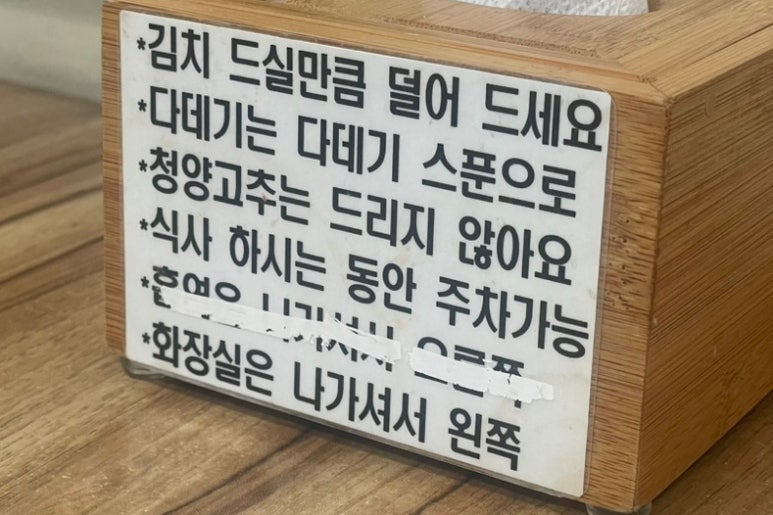 *김치 드실만큼 덜어 드세요
*다데기는 다데기 스푼으로
*청양고추는 드리지 않아요
*식사 하시는 동안 주차가능
*흡연은 나가셔서 오른쪽
*화장실은 나가셔서 왼쪽